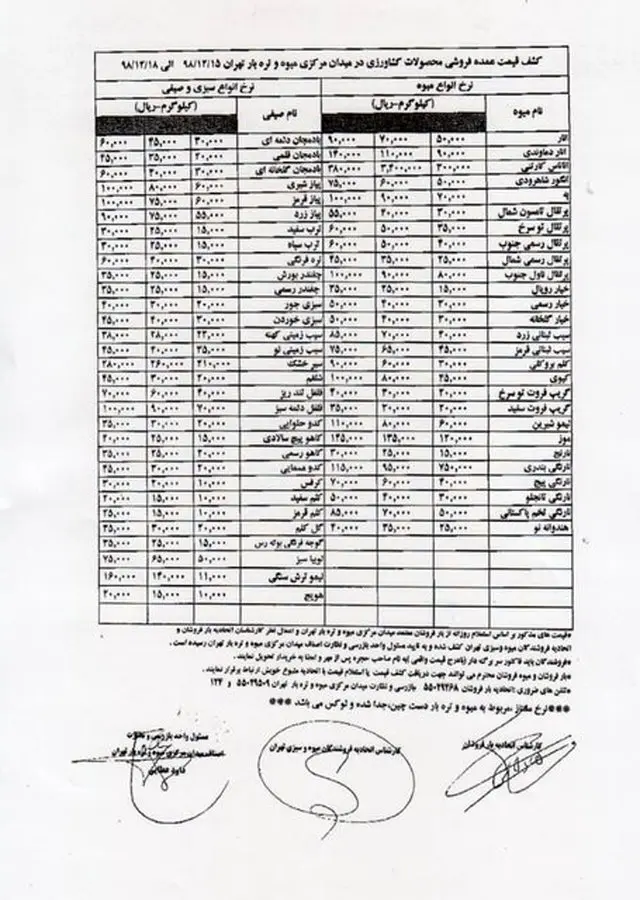 کشف قیمت عمده فروشی محصولات کشاورزی در میدان مرکزی میوه و تره بار تهران ۹۸/۱۲/۱۵ الی ۹۸/۱۲/۱۸
نرخ انواع میوه نرخ انواع سبزی و صیفی
نام میوه (کیلوگرم-ریال) نام صیفی (کیلوگرم-ریال)
انار ۵۰,۰۰۰ ۷۰,۰۰۰ ۹۰,۰۰۰ بادمجان دلمه ای ۳۰,۰۰۰ ۴۵,۰۰۰ ۶۰,۰۰۰
انار دماوندی ۹۰,۰۰۰ ۱۱۰,۰۰۰ ۱۴۰,۰۰۰ بادمجان قلمی ۲۰,۰۰۰ ۳۵,۰۰۰ ۴۵,۰۰۰
آناناس کارتنی ۳۰۰,۰۰۰ ۳,۴۰۰,۰۰۰ ۳۸۰,۰۰۰ بادمجان گلخانه ای ۳۰,۰۰۰ ۴۰,۰۰۰ ۶۰,۰۰۰
انگور شاهرودی ۵۰,۰۰۰ ۶۰,۰۰۰ ۷۵,۰۰۰ پیاز شیری ۶۰,۰۰۰ ۸۰,۰۰۰ ۱۰۰,۰۰۰
به ۷۰,۰۰۰ ۹۰,۰۰۰ ۱۰۰,۰۰۰ پیاز قرمز ۶۰,۰۰۰ ۷۵,۰۰۰ ۱۰۰,۰۰۰
پرتقال تامسون شمال ۳۰,۰۰۰ ۴۰,۰۰۰ ۵۵,۰۰۰ پیاز زرد ۵۵,۰۰۰ ۷۵,۰۰۰ ۹۰,۰۰۰
پرتقال تو سرخ ۳۵,۰۰۰ ۵۰,۰۰۰ ۶۰,۰۰۰ ترب سفید ۱۵,۰۰۰ ۲۵,۰۰۰ ۳۰,۰۰۰
پرتقال رسمی جنوب ۴۰,۰۰۰ ۵۰,۰۰۰ ۶۰,۰۰۰ ترب سیاه ۱۵,۰۰۰ ۲۵,۰۰۰ ۳۰,۰۰۰
پرتقال رسمی شمال ۲۵,۰۰۰ ۳۵,۰۰۰ ۴۵,۰۰۰ تره فرنگی ۳۰,۰۰۰ ۴۰,۰۰۰ ۶۰,۰۰۰
پرتقال ناول جنوب ۸۰,۰۰۰ ۹۰,۰۰۰ ۱۰۰,۰۰۰ چغندر بورش ۱۵,۰۰۰ ۲۵,۰۰۰ ۳۵,۰۰۰
خیار رویال ۱۵,۰۰۰ ۲۵,۰۰۰ ۳۵,۰۰۰ چغندر رسمی ۱۵,۰۰۰ ۲۵,۰۰۰ ۳۵,۰۰۰
خیار رسمی ۳۰,۰۰۰ ۴۰,۰۰۰ ۵۰,۰۰۰ سبزی جور ۲۰,۰۰۰ ۳۰,۰۰۰ ۴۰,۰۰۰
خیار گلخانه ۳۰,۰۰۰ ۴۰,۰۰۰ ۵۰,۰۰۰ سبزی خوردن ۳۰,۰۰۰ ۴۰,۰۰۰ ۴۵,۰۰۰
سیب لبنانی زرد ۵۰,۰۰۰ ۷۰,۰۰۰ ۸۵,۰۰۰ سیب زمینی کهنه ۲۲,۰۰۰ ۲۸,۰۰۰ ۳۸,۰۰۰
سیب لبنانی قرمز ۴۵,۰۰۰ ۶۵,۰۰۰ ۷۵,۰۰۰ سیب زمینی نو ۳۵,۰۰۰ ۴۰,۰۰۰ ۴۵,۰۰۰
کلم بروکلی ۳۰,۰۰۰ ۶۰,۰۰۰ ۹۰,۰۰۰ سیر خشک ۲۱۰,۰۰۰ ۲۶۰,۰۰۰ ۲۸۰,۰۰۰
کیوی ۴۵,۰۰۰ ۸۰,۰۰۰ ۱۰۰,۰۰۰ شلغم ۲۰,۰۰۰ ۳۰,۰۰۰ ۴۵,۰۰۰
گریپ فروت تو سرخ ۲۰,۰۰۰ ۳۰,۰۰۰ ۴۰,۰۰۰ فلفل تند ریز ۴۰,۰۰۰ ۶۰,۰۰۰ ۷۰,۰۰۰
گریپ فروت سفید ۲۰,۰۰۰ ۲۰,۰۰۰ ۳۵,۰۰۰ فلفل دلمه سبز ۷۰,۰۰۰ ۹۰,۰۰۰ ۱۰۰,۰۰۰
لیمو شیرین ۶۰,۰۰۰ ۸۰,۰۰۰ ۱۱۰,۰۰۰ کدو حلوایی ۲۰,۰۰۰ ۳۰,۰۰۰ ۳۵,۰۰۰
موز ۱۲۰,۰۰۰ ۱۳۵,۰۰۰ ۱۴۵,۰۰۰ کاهو پیچ سالادی ۱۵,۰۰۰ ۲۵,۰۰۰ ۴۰,۰۰۰
نارنج ۱۵,۰۰۰ ۲۵,۰۰۰ ۳۰,۰۰۰ کاهو رسمی ۲۰,۰۰۰ ۳۰,۰۰۰ ۳۵,۰۰۰
نارنگی بندری ۷۵۰,۰۰۰ ۹۵,۰۰۰ ۱۱۵,۰۰۰ کدو مسمایی ۲۰,۰۰۰ ۳۰,۰۰۰ ۴۵,۰۰۰
نارنگی پیج ۴۰,۰۰۰ ۶۰,۰۰۰ ۷۰,۰۰۰ کرفس ۱۰,۰۰۰ ۲۰,۰۰۰ ۲۵,۰۰۰
نارنگی تانجلو ۳۰,۰۰۰ ۴۰,۰۰۰ ۵۰,۰۰۰ کلم سفید ۱۰,۰۰۰ ۱۵,۰۰۰ ۲۰,۰۰۰
نارنگی تخم پاکستانی ۵۰,۰۰۰ ۷۰,۰۰۰ ۸۵,۰۰۰ کلم قرمز ۱۰,۰۰۰ ۱۵,۰۰۰ ۲۵,۰۰۰
هندوانه نو ۲۵,۰۰۰ ۳۵,۰۰۰ ۴۰,۰۰۰ گل کلم ۲۰,۰۰۰ ۳۰,۰۰۰ ۳۵,۰۰۰
گوجه فرنگی بوته رس ۱۵,۰۰۰ ۲۵,۰۰۰ ۳۵,۰۰۰
لوبیا سبز ۵۰,۰۰۰ ۶۵,۰۰۰ ۷۵,۰۰۰
لیمو ترش سنگی ۱۱,۰۰۰ ۱۴۰,۰۰۰ ۱۶۰,۰۰۰
هویج ۱۰,۰۰۰ ۱۵,۰۰۰ ۲۰,۰۰۰
*قیمت های مذکور بر اساس استعلام روزانه از بار فروشان معتمد میدان مرکزی میوه و تره بار تهران و اعمال نظر کارشناسان اتحادیه بار فروشان و
اتحادیه فروشندگان میوه وسبزی تهران کشف شده و به تایید مسئول واحد بازرسی و نظارت اصناف میدان مرکزی میوه و تره بار تهران رسیده است.
*فروشندگان باید فاکتور سر برگه دار (بادرج قیمت واقعی) به نام صاحب حجره پس از مهر و امضا به خریدار تحویل نمایند.
*بار فروشان و میوه فروشان محترم می توانند جهت دریافت کشف قیمت یا استعلام قیمت با اتحادیه متبوع خویش ارتباط برقرار نمایند.
*تلفن های ضروری: اتحادیه بار فروشان ۵۵۰۲۹۲۶۸ بازرسی و نظارت میدان مرکزی میوه و تره بار تهران ۵۵۰۲۹۵۰۹ و ۱۲۴
***نرخ ممتاز ،مربوط به میوه و تره بار دست چین،جدا شده و لوکس می باشد ***
کارشناس اتحادیه بار فروشان کارشناس اتحادیه فروشندگان میوه و سبزی تهران مسئول واحد بازرسی و نظارت
اصناف میدان مرکزی میوه و تره بار تهران